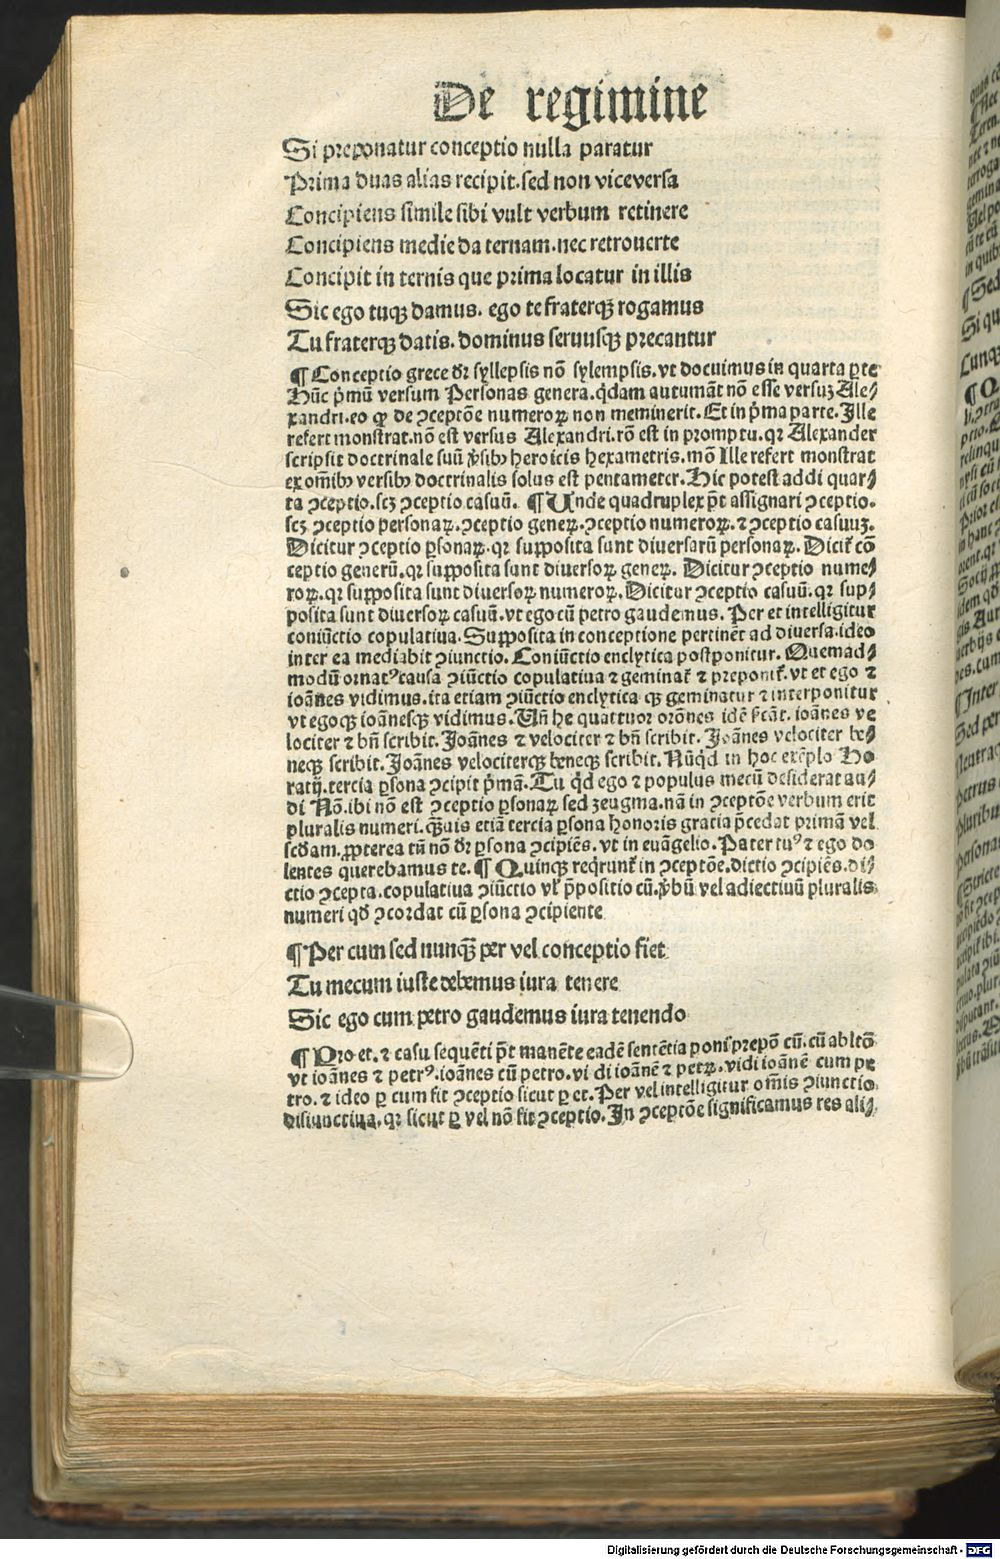 De regimine
Si preponatur conceptio nulla paratur
Prima duas alias recipit. sed non viceversa
Concipiens simile sibi vult verbum retinere
Concipiens medie da ternam. nec retrouerte
Concipit in ternis que prima locatur in illis
Sic ego tuqꝫ damus. ego te fraterqꝫ rogamus
Tu fraterqꝫ datis. dominus seruusqꝫ precantur
¶ Conceptio grece dr̄ syllepsis nō sylempsis. vt docuimus in quarta ꝑte
Hūc pͥmū versum Personas genera. qͥdam autumāt nō esse versuꝫ Ale⸗
xandri. eo ꝙ de ꝯceptōe numeroꝝ non meminerit. Et in pͥma parte. Ille
refert monstrat. nō est versus Alexandri. rō est in promptu. qꝛ Alexander
scripsit doctrinale suū v̓sibꝰ heroicis hexametris. mō Ille refert monstrat
ex om̄ibꝰ versibꝰ doctrinalis solus est pentameter. Hic potest addi quar⸗
ta ꝯceptio. scꝫ ꝯceptio casuū. ¶ Unde quadruplex pt̄ assignari ꝯceptio.
scꝫ ꝯceptio personaꝝ. ꝯceptio geneꝝ. ꝯceptio numeroꝝ. ⁊ ꝯceptio casuuꝫ.
Dicitur ꝯceptio ꝑsonaꝝ. qꝛ supposita sunt diuersarū personaꝝ. Dicit̄ cō
ceptio generū. qꝛ supposita sunt diuersoꝝ geneꝝ. Dicitur ꝯceptio nume⸗
roꝝ. qꝛ supposita sunt diuersoꝝ numeroꝝ. Dicitur ꝯceptio casuū. qꝛ sup⸗
posita sunt diuersoꝝ casuū. vt ego cū petro gaudemus. Per et intelligitur
coniūctio copulatiua. Supposita in conceptione pertinēt ad diuersa. ideo
inter ea mediabit ꝯiunctio. Coniūctio enclytica postponitur. Quemad⸗
modū ornatꝰ causa ꝯiūctio copulatiua ⁊ geminat̄ ⁊ preponit̄. vt et ego ⁊
ioānes vidimus. ita etiam ꝯiūctio enclytica qꝫ geminatur ⁊ interponitur
vt egoqꝫ ioānesqꝫ vidimus. Un̄ he quattuor orōnes idē sc̄āt. ioānes ve
lociter ⁊ bn̄ scribit. Joānes ⁊ velociter ⁊ bn̄ scribit. Joānes velociter be⸗
neqꝫ scribit. Joānes velociterqꝫ beneqꝫ scribit. Nūqͥd in hoc exēplo Ho
ratij. tercia ꝑsona ꝯcipit pͥmā. Tu qͥd ego ⁊ populus mecū desiderat au⸗
di Nō. ibi nō est ꝯceptio ꝑsonaꝝ sed zeugma. nā in ꝯceptōe verbum erit
pluralis numeri. qͣꝫuis etiā tercia ꝑsona honoris gratia p̄cedat primā vel
scd̄am. ꝓpterea tn̄ nō dr̄ ꝑsona ꝯcipiēs. vt in euāgelio. Pater tuꝰ ⁊ ego do
lentes querebamus te. ¶ Quinqꝫ reqͥrunt̄ in ꝯceptōe. dictio ꝯcipiēs. di⸗
ctio ꝯcepta. copulatiua ꝯiūctio vl̓ p̄positio cū. v̓bū vel adiectiuū pluralis
numeri qd̓ ꝯcordat cū ꝑsona ꝯcipiente
¶ Per cum sed nunqͣꝫ per vel conceptio fiet
Tu mecum iuste debemus iura tenere
Sic ego cum petro gaudemus iura tenendo
¶ Pro et. ⁊ casu sequēti pt̄ manēte eadē sentētia poni prepō cū. cū abltō
vt ioānes ⁊ petrꝰ. ioānes cū petro. vidi ioānē ⁊ petꝝ. vidi ioānē cum pe
tro. ⁊ ideo ꝑ cum fit ꝯceptio sicut ꝑ et. Per vel intelligitur om̄is ꝯiunctio
disiunctiua. qꝛ sicut ꝑ vel nō fit ꝯceptio. In ꝯceptōe significamus res ali⸗
Digitalisierung gefördert durch die Deutsche Forschungsgemeinschaft - DFG